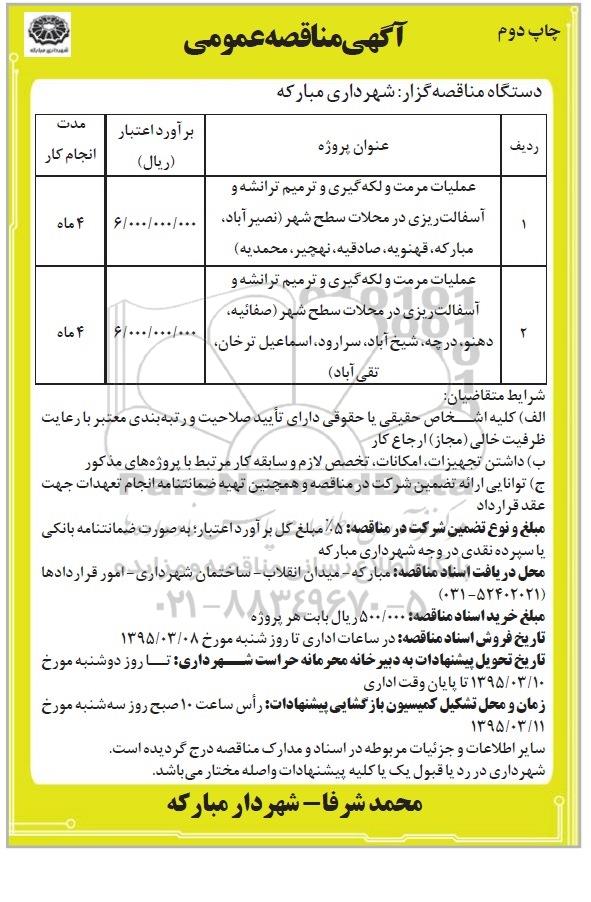 چاپ دوم
آگهی مناقصه عمومی
شهرداری مبارکه
دستگاه مناقصه‌گزار: شهرداری مبارکه
ردیف
عنوان پروژه
برآورد اعتبار
(ریال)
مدت
انجام کار
۱
عملیات مرمت و لکه‌گیری و ترمیم ترانشه و
آسفالت‌ریزی در محلات سطح شهر (نصیرآباد،
مبارکه، قهنویه، صادقیه، نهچیر، محمدیه)
۶/۰۰۰/۰۰۰/۰۰۰
۴ ماه
۲
عملیات مرمت و لکه‌گیری و ترمیم ترانشه و
آسفالت‌ریزی در محلات سطح شهر (صفائیه،
دهنو، درچه، شیخ آباد، سرارود، اسماعیل ترخان،
تقی آباد)
۶/۰۰۰/۰۰۰/۰۰۰
۴ ماه
شرایط متقاضیان:
الف) کلیه اشخاص حقیقی یا حقوقی دارای تأیید صلاحیت و رتبه‌بندی معتبر با رعایت
ظرفیت خالی (مجاز) ارجاع کار
ب) داشتن تجهیزات، امکانات، تخصص لازم و سابقه کار مرتبط با پروژه‌های مذکور
ج) توانایی ارائه تضمین شرکت در مناقصه و همچنین تهیه ضمانتنامه انجام تعهدات جهت
عقد قرارداد
مبلغ و نوع تضمین شرکت در مناقصه: ۵٪ مبلغ کل برآورد اعتبار: به صورت ضمانتنامه بانکی
یا سپرده نقدی در وجه شهرداری مبارکه
محل دریافت اسناد مناقصه: مبارکه- میدان انقلاب- ساختمان شهرداری- امور قراردادها
(۰۳۱-۵۲۴۰۲۰۲۱)
مبلغ خرید اسناد مناقصه: ۵۰۰/۰۰۰ ریال بابت هر پروژه
تاریخ فروش اسناد مناقصه: در ساعات اداری تا روز شنبه مورخ ۱۳۹۵/۰۳/۰۸
تاریخ تحویل پیشنهادات به دبیرخانه محرمانه حراست شهرداری: تا روز دوشنبه مورخ
۱۳۹۵/۰۳/۱۰ تا پایان وقت اداری
زمان و محل تشکیل کمیسیون بازگشایی پیشنهادات: رأس ساعت ۱۰ صبح روز سه‌شنبه مورخ
۱۳۹۵/۰۳/۱۱
سایر اطلاعات و جزئیات مربوطه در اسناد و مدارک مناقصه درج گردیده است.
شهرداری در رد یا قبول یک یا کلیه پیشنهادات واصله مختار می‌باشد.
محمد شرفا- شهردار مبارکه
۰۲۱-۸۸۳۴۹۶۷۰-۵